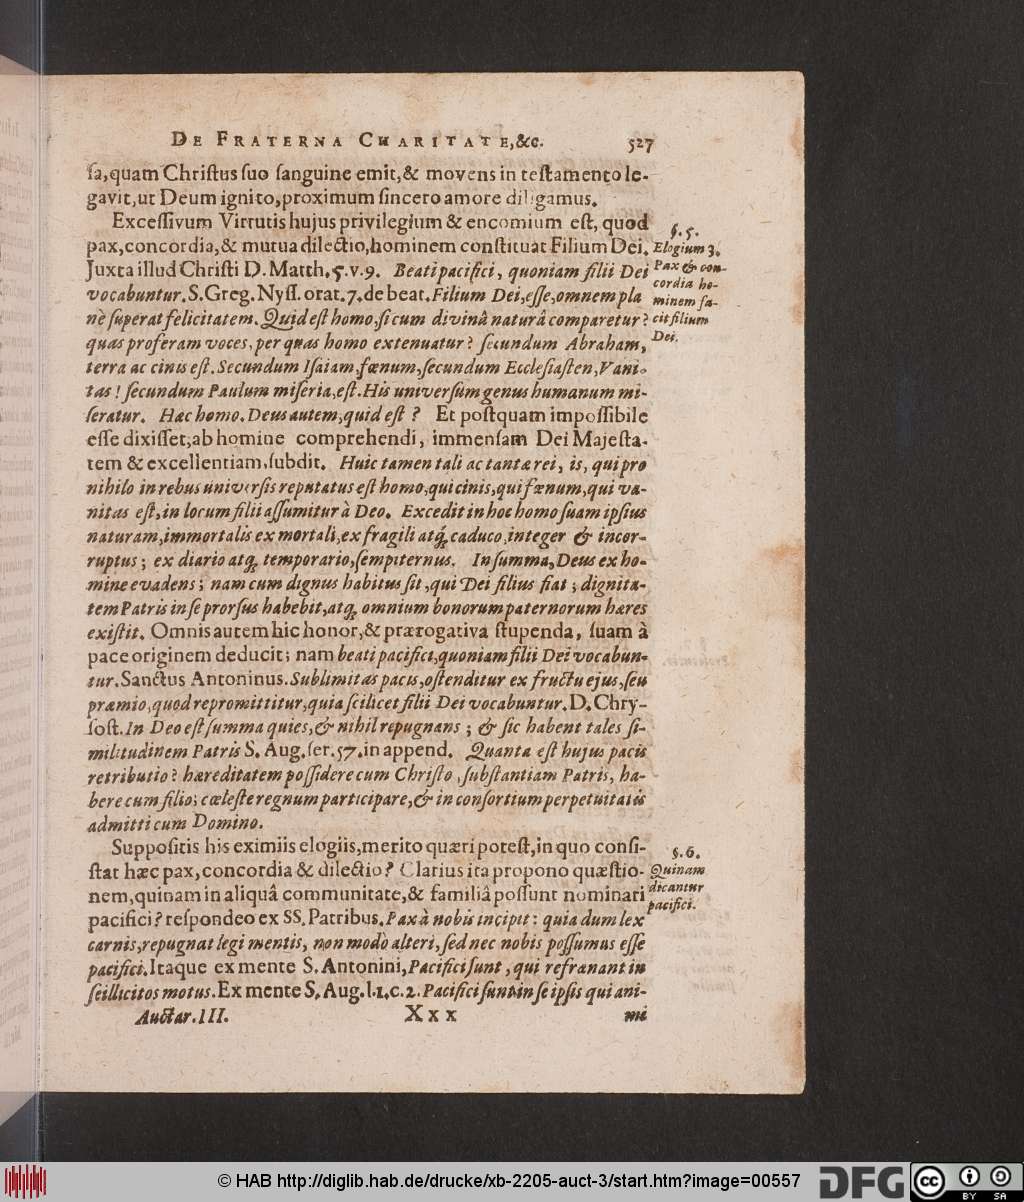 DE FRATERNA CHARITATE,&c. 527
ſa,quam Chriſtus ſuo ſanguine emit,& movens in teſtamento le-
gavit,ut Deum ignito,proximum ſincero amore diligamus.
Exceſſivum Virtutis hujus privilegium & encomium eſt, quod
pax,concordia,& mutua dilectio,hominem conſtituat Filium Dei.
Juxta illud Chriſti D. Matth. 5. v. 9. Beati pacifici, quoniam filii Dei
vocabuntur. S. Greg. Nyſſ. orat. 7. de beat. Filium Dei,eſſe,omnem pla
nè ſuperat felicitatem. Quid eſt homo,ſi cum divinâ naturâ comparetur?
quas proferam voces,per quas homo extenuatur? ſecundum Abraham,
terra ac cinis eſt. Secundum Iſaiam,fœnum,ſecundum Eccleſiaſten,Vani-
tas! ſecundum Paulum miſeria,eſt. His univerſûm genus humanum mi-
ſeratur. Hac homo. Deus autem,quid eſt? Et poſtquam impoſſibile
eſſe dixiſſet,ab homine comprehendi, immenſam Dei Majeſta-
tem & excellentiam,ſubdit. Huic tamen tali ac tantæ rei, is, qui pro
nihilo in rebus univerſis reputatus eſt homo,qui cinis,qui fœnum,qui va-
nitas eſt,in locum filii aſſumitur à Deo. Excedit in hoc homo ſuam ipſius
naturam,immortalis ex mortali,ex fragili atq; caduco,integer & incor-
ruptus; ex diario atq; temporario,ſempiternus. In ſumma,Deus ex ho-
mine evadens; nam cum dignus habitus ſit,qui Dei filius fiat; dignita-
tem Patris in ſe prorſus habebit,atq; omnium bonorum paternorum hæres
exiſtit. Omnis autem hic honor,& prærogativa ſtupenda, ſuam à
pace originem deducit; nam beati pacifici,quoniam filii Dei vocabun-
tur. Sanctus Antoninus. Sublimitas pacis,oſtenditur ex fructu ejus,ſeu
præmio,quod repromittitur,quia ſcilicet filii Dei vocabuntur. D. Chry-
ſoſt. In Deo eſt ſumma quies,& nihil repugnans; & ſic habent tales ſi-
militudinem Patris S. Aug. ſer. 57. in append. Quanta eſt hujus pacis
retributio? hæreditatem poſſidere cum Chriſto, ſubſtantiam Patris, ha-
bere cum filio; cœleſte regnum participare,& in conſortium perpetuitatis
admitti cum Domino.
Suppoſitis his eximiis elogiis,merito quæri poteſt,in quo conſi-
ſtat hæc pax,concordia & dilectio? Clarius ita propono quæſtio-
nem,quinam in aliquâ communitate,& familiâ poſſunt nominari
pacifici? reſpondeo ex SS. Patribus. Pax à nobis incipit: quia dum lex
carnis,repugnat legi mentis, non modò alteri,ſed nec nobis poſſumus eſſe
pacifici. Itaque ex mente S. Antonini, Pacifici ſunt, qui refrænant in
ſe illicitos motus. Ex mente S. Aug. l. 1. c. 2. Pacifici ſunt in ſe ipſis qui ani-
Auctar. III. Xxx mi
§. 5.
Elogium 3.
Pax & con-
cordia ho-
minem fa-
cit filium
Dei.
§. 6.
Quinam
dicantur
pacifici.
© HAB http://diglib.hab.de/drucke/xb-2205-auct-3/start.htm?image=00557
DFG
cc
BY SA